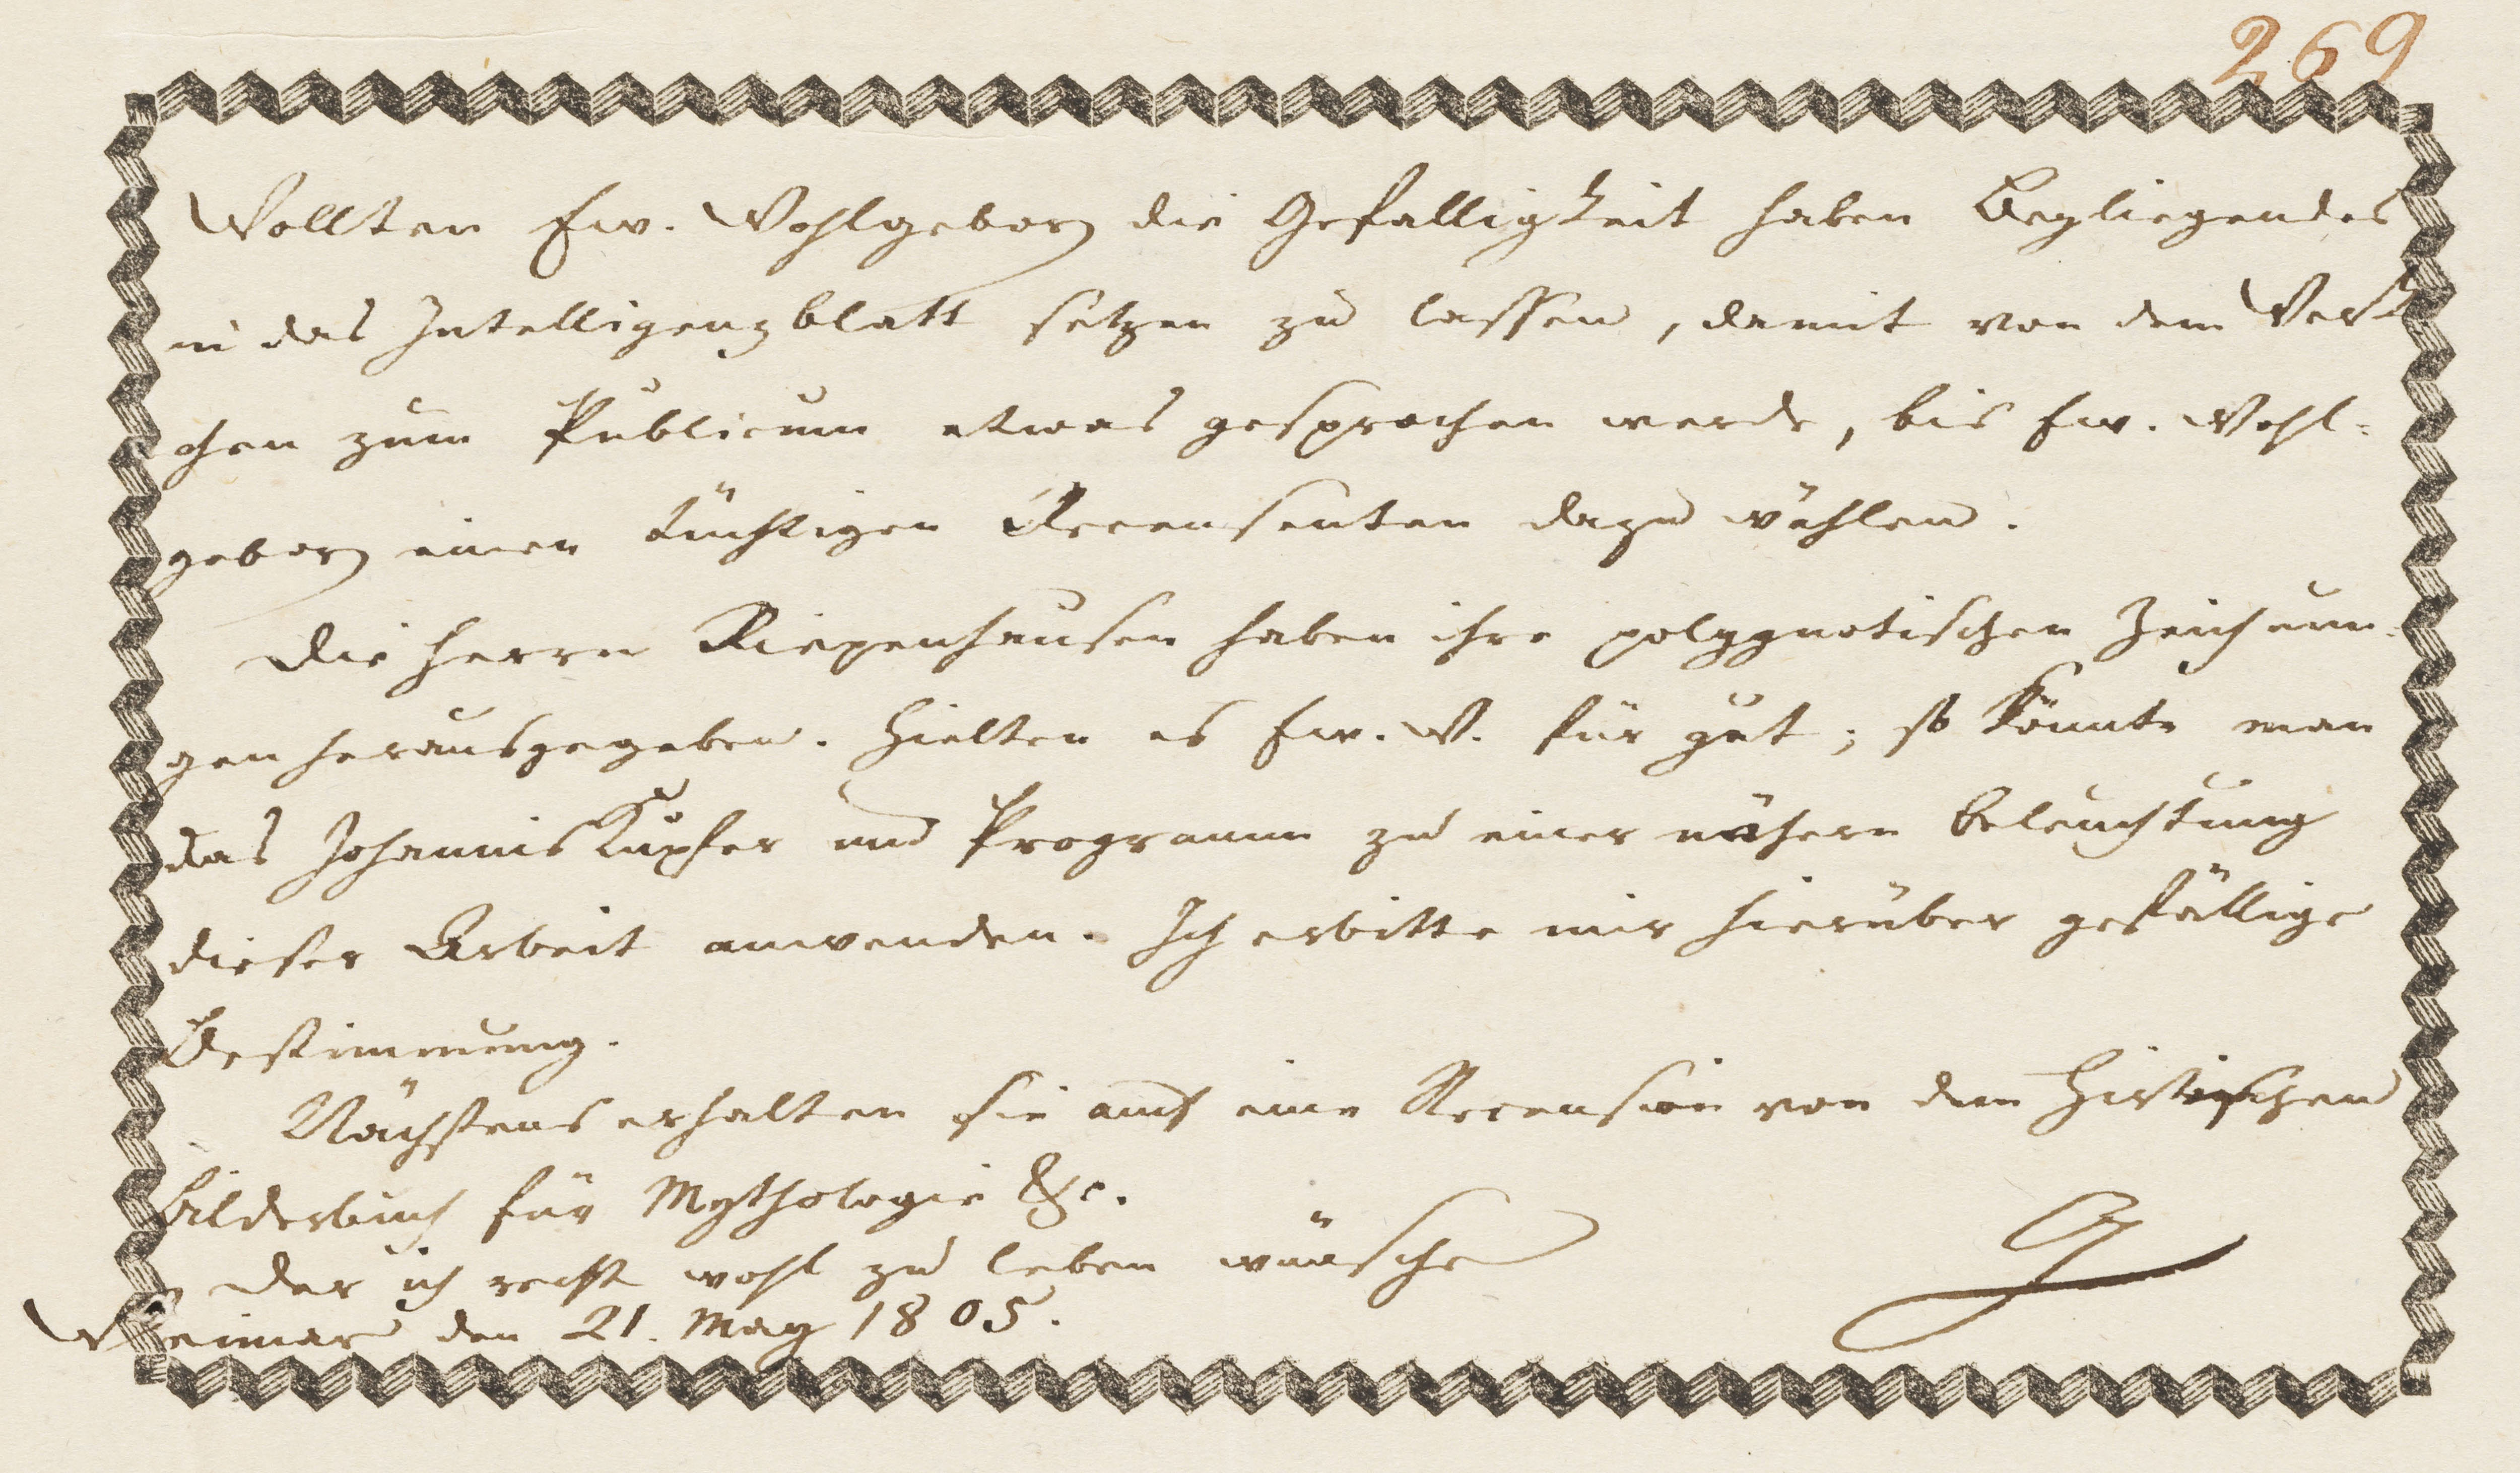 269
Wollten Ew. Wohlgeborn die Gefalligkeit haben Beyliegendes
in das Intelligenzblatt setzen zu lassen, damit von dem Werk
chen zum Publicum etwas gesprochen werde, bis Ew. Wohl-
geborn einen tüchtigen Recensenten dazu wählen.
Die Herrn Riepenhausen haben ihre polygnotischen Zeichnun-
gen herausgegeben. Hielten es Ew. W. für gut; so könnte man
das Johannis Kupfer und Programm zu einer nähern Beleuchtung
dieser Arbeit anwenden. Ich erbitte mir hierüber gefällige
Bestimmung.
Nächstens erhalten sie auch eine Recension von dem Hirtischen
Bilderbuch für Mythologie &c.
Der ich recht wohl zu leben wünsche
G
Weimar den 21. May 1805.